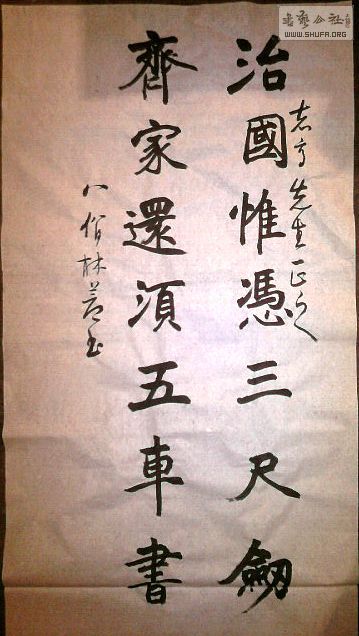 志高先生正之
治國惟憑三尺劒
齊家還須五車書
八
林
書藝公社
WWW.SHUFA.ORG